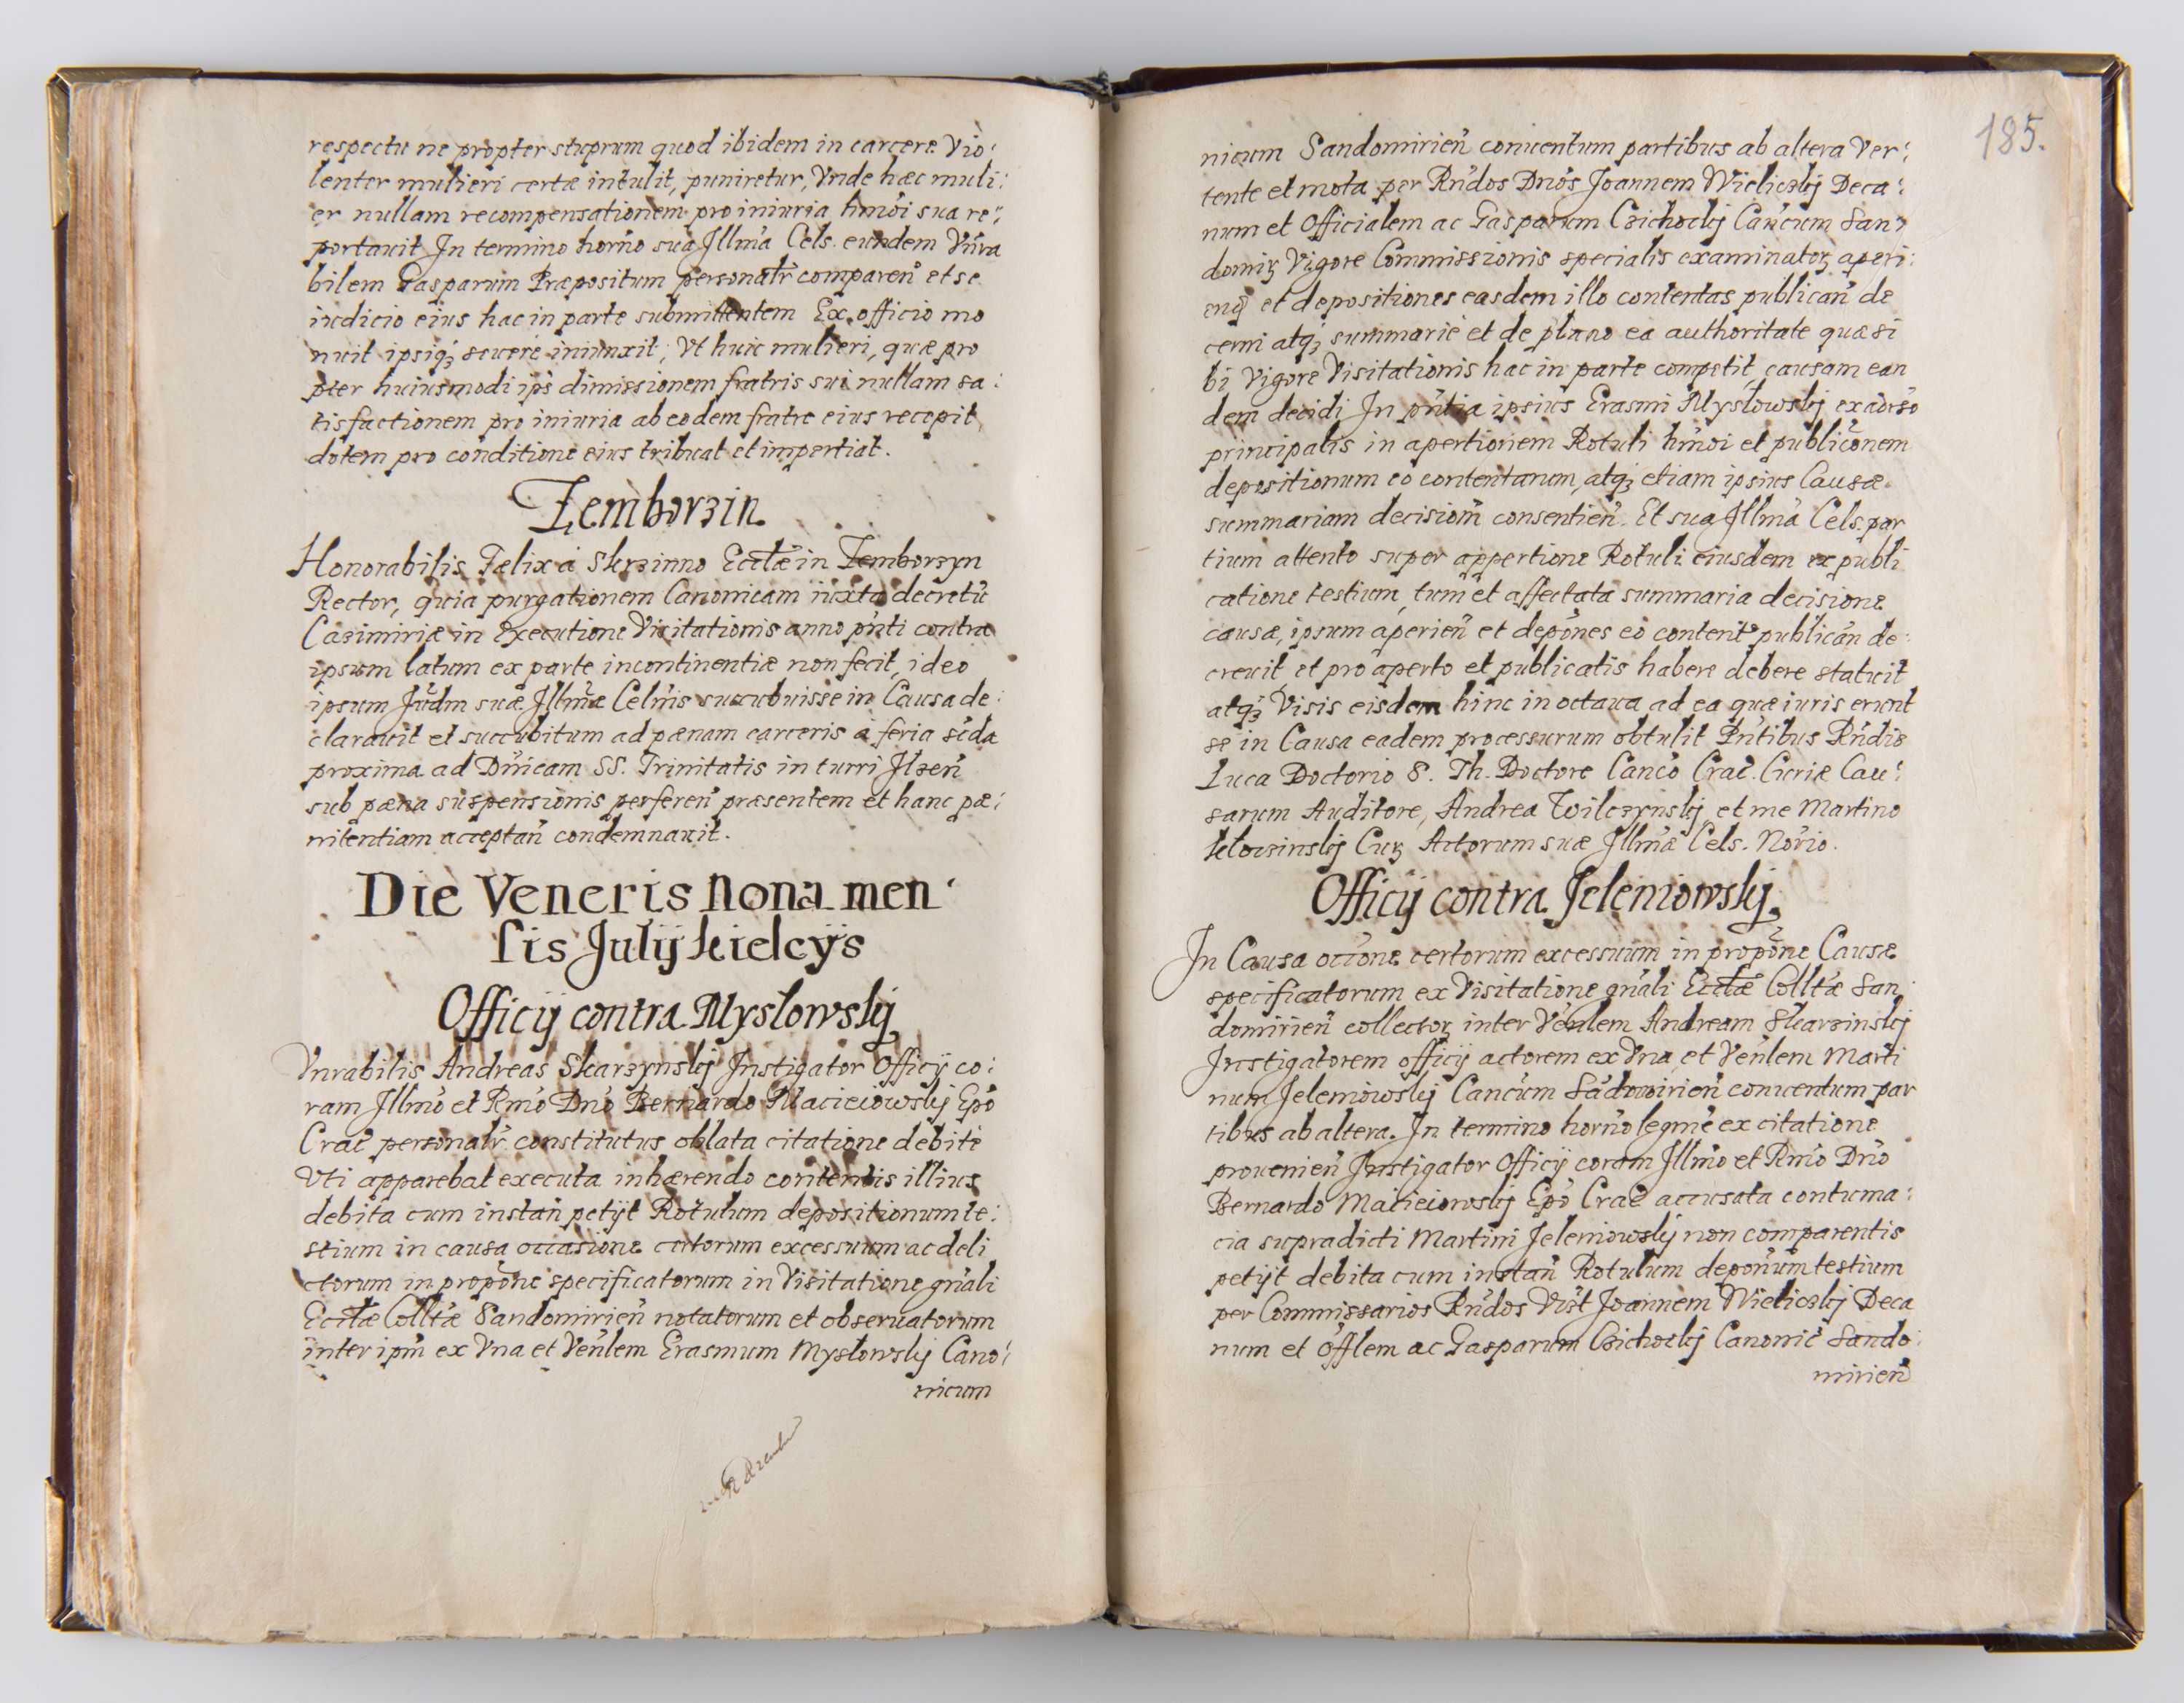 respectu ne propter stuprum quod ibidem in carcere Vio:
lenter mulieri certæ intulit, puniretur, Vnde hæc muli:
er nullam recompensationem pro iniuria hmoi sua re:
portauit In termino horno sua Illma Cels. eundem Vnra
bilem Gasparum Præpositum personalr comparen et se
iudicio eius hac in parte submittentem Ex officio mo
nuit ipsiq; seuere iniunxit, Vt huic mulieri, quæ pro
pter huiusmodi ips dimissionem fratris sui nullam sa:
tisfactionem pro iniuria ab eodem fratre eius recepit,
dotem pro conditione eius tribuat et impertiat.
Zemborzin
Honorabilis Fælix á Skrzinno Ecclæ in Zemborzyn
Rector, quia purgationem Canonicam iuxta decretu
Casimiriæ in Executione Visitationis anno pnti contra
ipsum latum ex parte incontinentiæ non fecit, ideo
ipsum Judm suæ Illmæ Celnis succubuisse in Causa de:
clarauit et succubitum ad pænam carceris á feria scda
proxima ad Dnicam SS. Trinitatis in turri Ilzen
sub pæna suspensionis perferen præsentem et hanc pæ:
nitentiam acceptan condemnauit.
Die Veneris Nona men
sis Julij Kielcys
Officij contra Myslowskj
Vnrabilis Andreas Skarzynskj Instigator Officij co:
ram Illmo et Rmo Dno Bernardo Macieiowskj Epo
Crac personalr constitutus oblata citatione debite
Vti apparebat executa inhærendo contentis illius
debita cum instan petijt Rotulum depositionum te:
stium in causa occasione certorum excessuum ac deli
ctorum in propone specificatorum in Visitatione gnali
Ecclæ Colltæ Sandomirien notatorum et obseruatorum
inter ipm ex Vna et Venlem Erasmum Mysłowskj Cano:
nicum
185.
nicum Sandomirien conuentum partibus ab altera Ver:
tente et mota per Rndos Dnos Joannem Wielicskj Deca:
num et Officialem ac Gasparum Czichockij Cancum San:
domiz Vigore Commissionis specialis examinatoz aperi:
end et depositiones easdem illo contentas publican de
cerni atq; summarie et de plano ea authoritate quæ si
bi Vigore Visitationis hac in parte competit, causam ean
dem decidi In pntia ipsius Erasmi Mysłowskj ex aduerso
principalis in apertionem Rotuli hmoi et publiconem
depositionum eo contentarum, atq; etiam ipsius Causæ
summariam decisiom consentien. Et sua Illma Cels. par
tium attento super appertione Rotuli eiusdem ex publi
catione testium, tum et affectata summaria decisione
causæ, ipsum aperien et depones eo content publican de:
creuit et pro aperto et publicatis habere debere statuit
atq; Visis eisdem hinc in octaua ad ea quæ iuris erunt
se in Causa eadem processurum obtulit Pntibus Rndis
Luca Doctorio S. Th. Doctore Canco Crac. Curiæ Cau:
sarum Auditore, Andrea Wilczynskj, et me Martino
Kłoczinskj Cuz Actorum suæ Illmæ Cels. Norio.
Officij contra Jeleniowskj.
In Causa occone certorum excessuum in propone Causæ
specificatorum ex Visitatione gnali Ecclæ Colltæ San
domirien collectoz inter Venlem Andream Skarzinskj
Instigatorem officij actorem ex Vna et Venlem Marti
num Jeleniowskj Cancum Sadomirien conuentum par
tibus ab altera. In termino horno legme ex citatione
prouenien Instigator Officij coram Illmo et Rmo Dno
Bernardo Macieiowskj Epo Crac accusata contuma:
cia supradicti Martini Jeleniowskj non comparentis
petijt debita cum instan Rotulum deponum testium
per Commissarios Rndos Vrst Joannem Wielicskj Deca
num et offlem ac Gasparum Czichockj Canonic Sando:
mirien